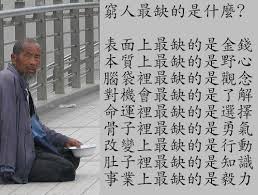 窮人最缺的是什麼?
表面上最缺的是金錢
本質上最缺的是野心
腦袋裡最缺的是觀念
對機會最缺的是了解
命運裡最缺的是選擇
骨子裡最缺的是勇氣
改變上最缺的是行動
肚子裡最缺的是知識
事業上最缺的是毅力